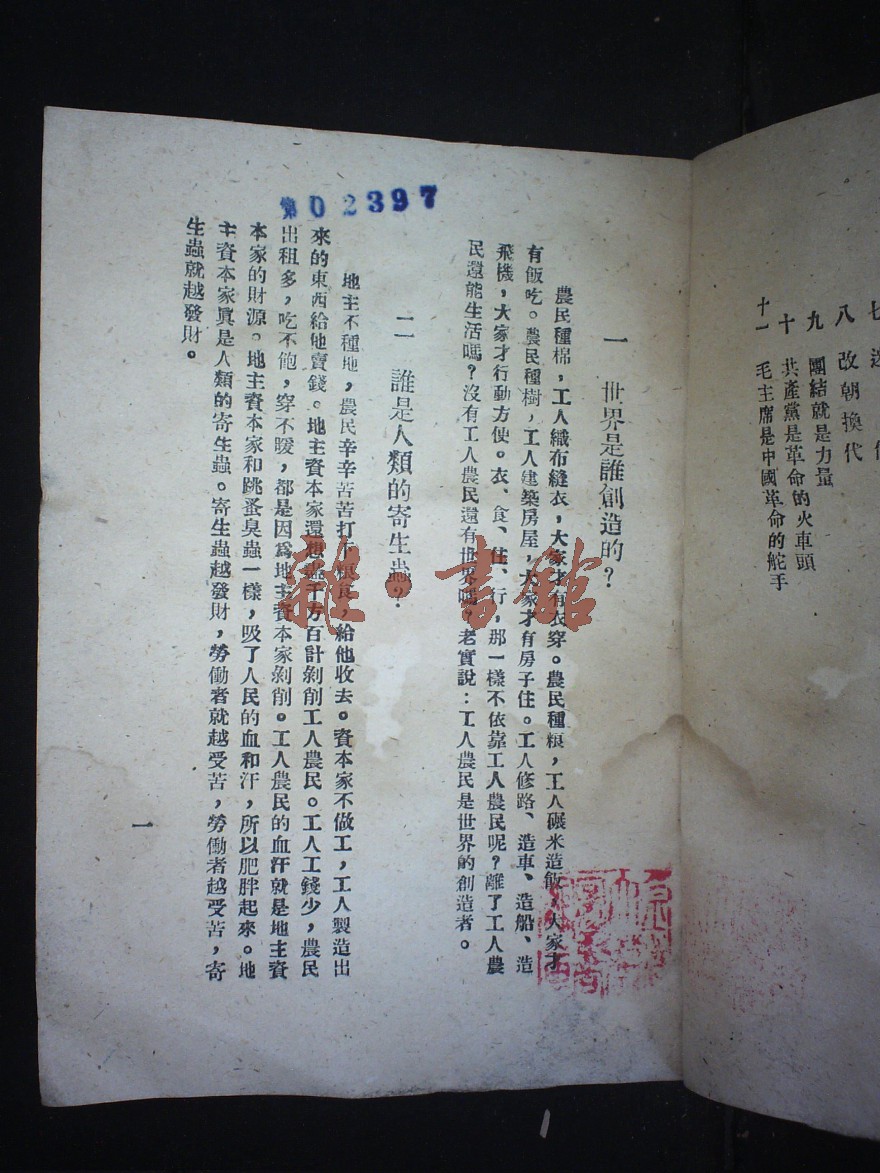 七
八 改朝換代
九 團結就是力量
十 共產黨是革命的火車頭
十一 毛主席是中國革命的舵手
第02397
一 世界是誰創造的？
農民種棉，工人織布縫衣，大家才有衣穿。農民種粮，工人碾米造飯，大家才
有飯吃。農民種樹，工人建築房屋，大家才有房子住。工人修路、造車、造船、造
飛機，大家才行動方便。衣、食、住、行，那一樣不依靠工人農民呢？離了工人農
民還能生活嗎？沒有工人農民還有世界嗎？老實說：工人農民是世界的創造者。
二 誰是人類的寄生蟲？
地主不種地，農民辛辛苦苦打下粮食，給他收去。資本家不做工，工人製造出
來的東西給他賣錢。地主資本家還想盡千方百計剝削工人農民。工人工錢少，農民
出租多，吃不飽，穿不暖，都是因爲地主資本家剝削。工人農民的血汗就是地主資
本家的財源。地主資本家和跳蚤臭蟲一樣，吸了人民的血和汗，所以肥胖起來。地
主資本家眞是人類的寄生蟲。寄生蟲越發財，勞働者就越受苦，勞働者越受苦，寄
生蟲就越發財。
一
雜·書館